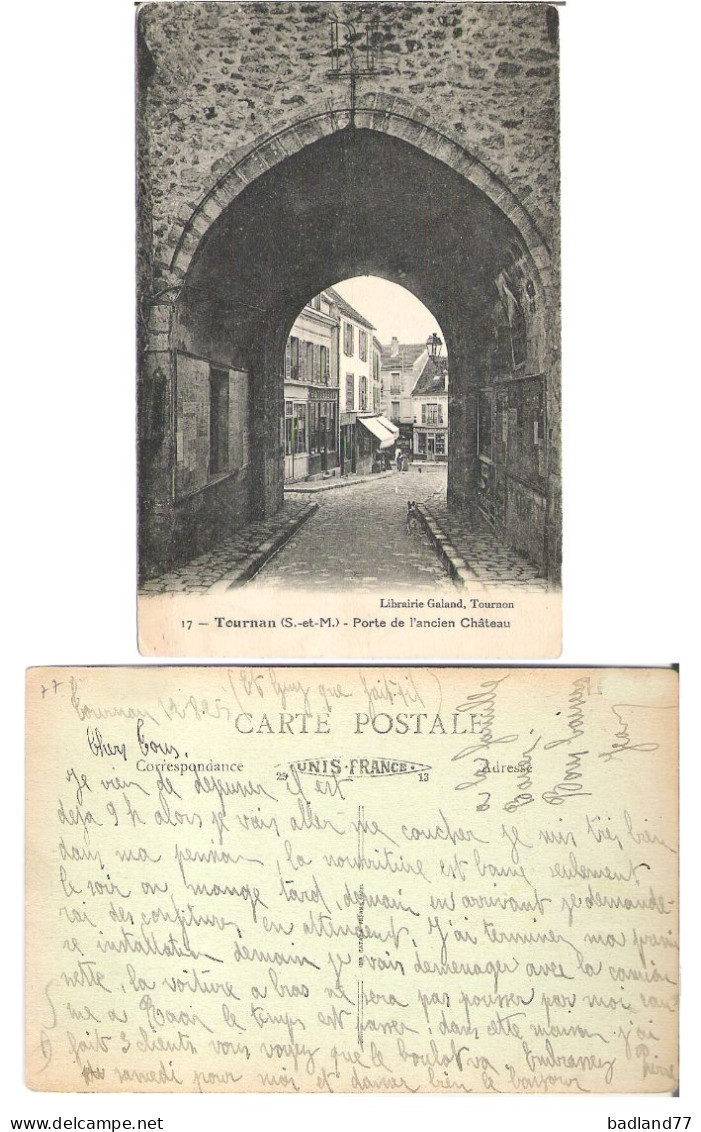 RF
Librairie Galand, Tournon
17 — Tournan (S.-et-M.) - Porte de l'ancien Château
77 Tournan 12 8 25 (Et Guy que fait-il)
CARTE POSTALE
Chers Tous.
Correspondance 29 UNIS-FRANCE 13 Adresse
la famille
Je viens de dejeuner il est
deja 9 h alors je vais aller me coucher je suis très bien
dans ma pension, la nourriture est bonne seulement
le soir on mange tard, demain en arrivant je demande-
rai des confitures en attendent. J'ai terminer ma premie
re installation demain je vais demenager avec la camion
nette, la voiture a bras ne sera pas pousser par moi com
me a le temps est passer; dans cette maison j'ai
fait 3 clients vous voyez que le boulot va Embrassez
samedi pour moi et donner bien le bonjour Pierre
badland77